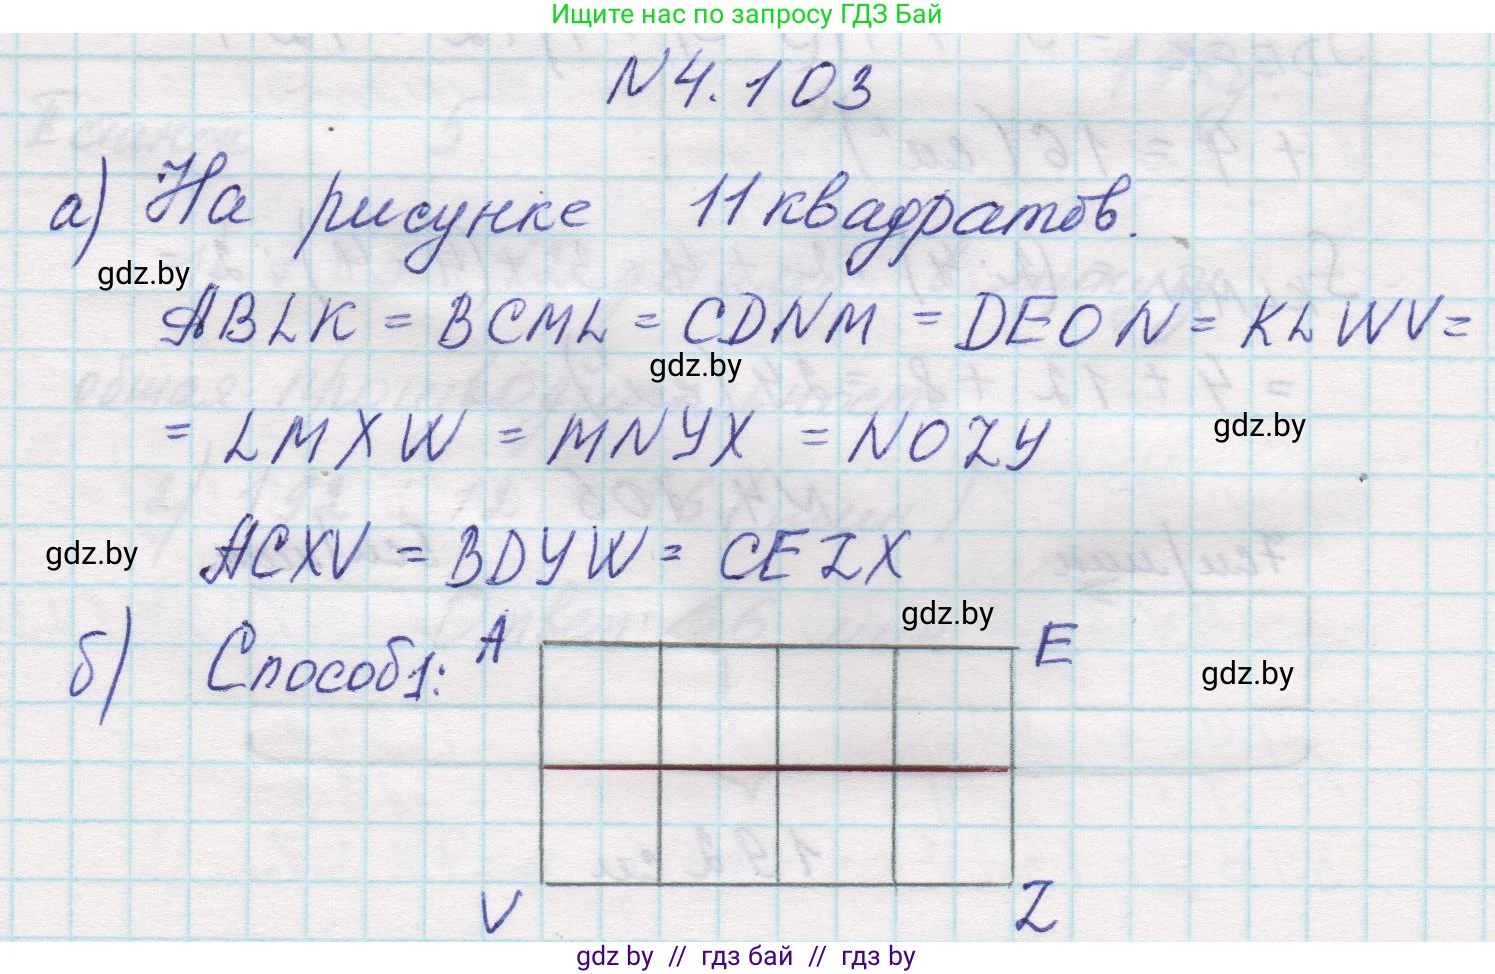 Ищите нас по запросу ГДЗ Бай
N4.103
а) На рисунке 11 квадратов.
gdz.by
ABLK = BCML = CDNM = DEON = KLWV =
gdz.by
= LMXW = MNYX = NOZY
gdz.by
ACXV = BDYW = CEZX
gdz.by
gdz.by
б) Способ1:
A
E
gdz.by
V
Z
gdz by // гдз бай // гдз by